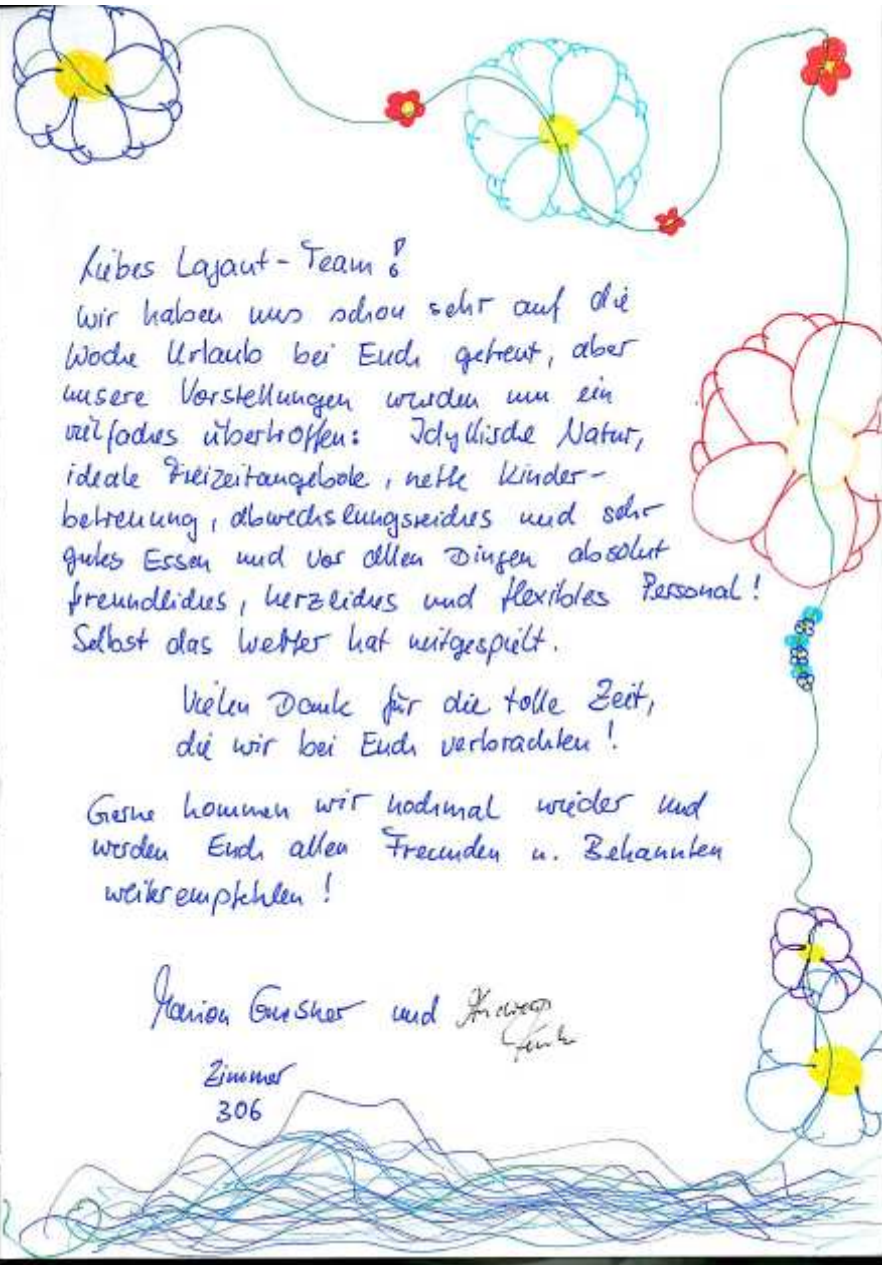 Liebes Lajaut-Team!
Wir haben uns schon sehr auf die
Woche Urlaub bei Euch gefreut, aber
unsere Vorstellungen wurden um ein
vielfaches übertroffen: Idyllische Natur,
ideale Freizeitangebote, nette Kinder-
betreuung, abwechslungsreiches und sehr
gutes Essen und vor allen Dingen absolut
freundliches, herzliches und flexibles Personal!
Selbst das Wetter hat mitgespielt.
Vielen Dank für die tolle Zeit,
die wir bei Euch verbrachten!
Gerne kommen wir nochmal wieder und
werden Euch allen Freunden u. Bekannten
weiterempfehlen!
Marion und Andreas
Zimmer
306